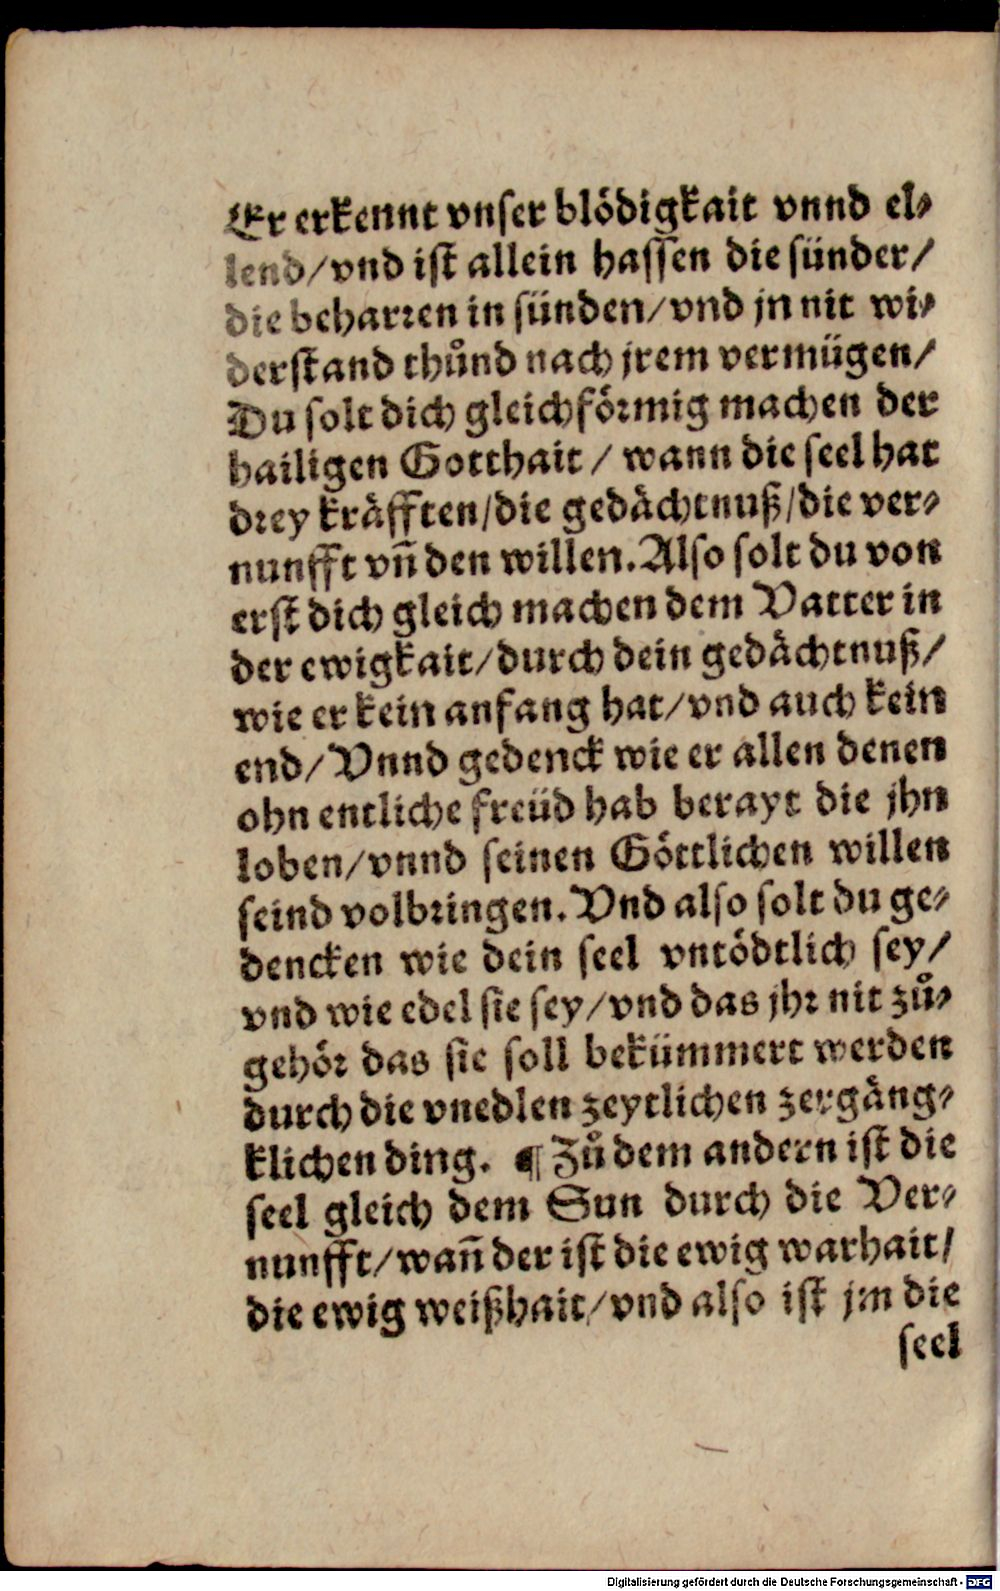 Er erkennt vnser blödigkait vnnd el⸗
lend/vnd ist allein hassen die sünder/
die beharren in sünden/vnd jn nit wi⸗
derstand thůnd nach jrem vermügen/
Du solt dich gleichförmig machen der
hailigen Gotthait / wann die seel hat
drey kräfften/die gedächtnuß/die ver⸗
nunfft vñ den willen. Also solt du von
erst dich gleich machen dem Vatter in
der ewigkait/durch dein gedächtnuß/
wie er kein anfang hat/vnd auch kein
end/Vnnd gedenck wie er allen denen
ohn entliche freüd hab berayt die jhn
loben/vnnd seinen Göttlichen willen
seind volbringen. Vnd also solt du ge⸗
dencken wie dein seel vntödtlich sey/
vnd wie edel sie sey/vnd das jhr nit zů⸗
gehör das sie soll bekümmert werden
durch die vnedlen zeytlichen zergäng⸗
klichen ding. ¶ Zů dem andern ist die
seel gleich dem Sun durch die Ver⸗
nunfft/wañ der ist die ewig warhait/
die ewig weißhait/vnd also ist jm die
seel
Digitalisierung gefördert durch die Deutsche Forschungsgemeinschaft - DFG